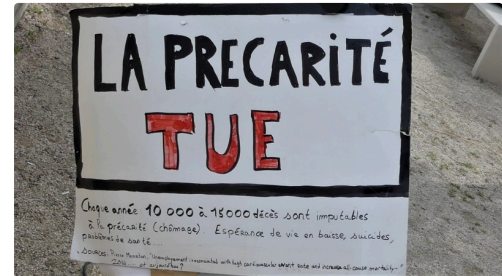 LA PRECARITÉ
TUE
Chaque année 10 000 à 15000 décès sont imputables
à la précarité (chômage). Espérance de vie en baisse, suicides,
problèmes de santé
SOURCES: Pierre Meneton, "Unemployment is associated with high cardiovascular event rate and increased all-cause mortality-"
2014 et aujourd'hui ?